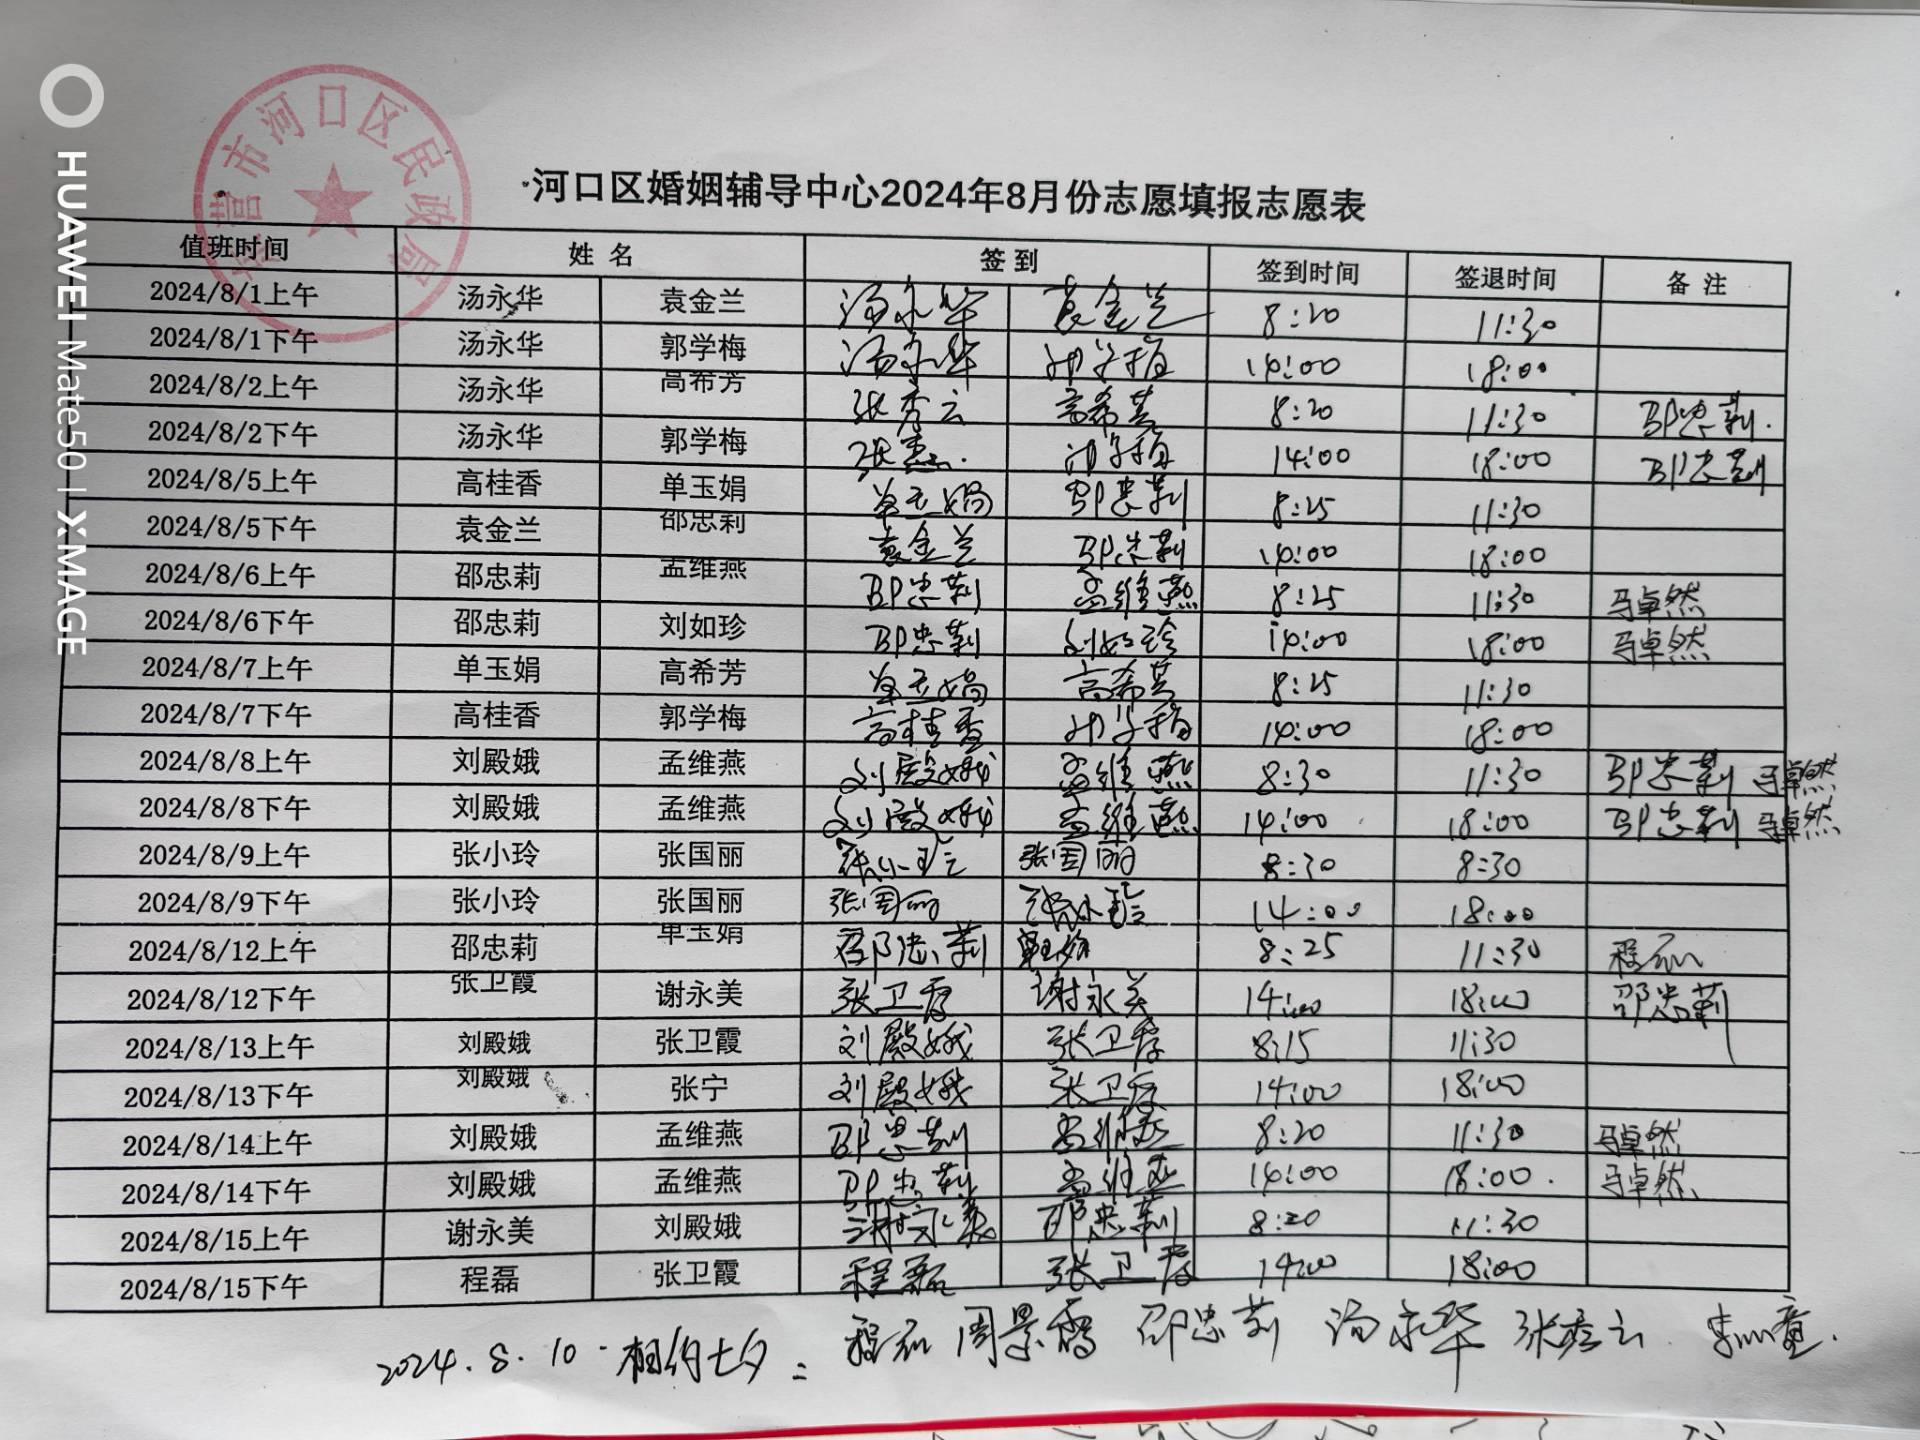 HUAWEI Mate50 | XMAGE
营市河口区民政局
河口区婚姻辅导中心2024年8月份志愿填报志愿表
值班时间 姓 名 签 到 签到时间 签退时间 备 注
2024/8/1上午 汤永华 袁金兰 汤永华 袁金兰 8:20 11:30
2024/8/1下午 汤永华 郭学梅 汤永华 郭学梅 14:00 18:00
2024/8/2上午 汤永华 高希芳 张秀云 高希芳 8:20 11:30 邵忠莉.
2024/8/2下午 汤永华 郭学梅 郭学梅 14:00 18:00 邵忠莉
2024/8/5上午 高桂香 单玉娟 单玉娟 邵忠莉 8:25 11:30
2024/8/5下午 袁金兰 邵忠莉 袁金兰 邵忠莉 14:00 18:00
2024/8/6上午 邵忠莉 孟维燕 邵忠莉 孟维燕 8:25 11:30 马卓然
2024/8/6下午 邵忠莉 刘如珍 邵忠莉 刘如珍 14:00 18:00 马卓然
2024/8/7上午 单玉娟 高希芳 单玉娟 高希芳 8:25 11:30
2024/8/7下午 高桂香 郭学梅 高桂香 郭学梅 14:00 18:00
2024/8/8上午 刘殿娥 孟维燕 刘殿娥 孟维燕 8:30 11:30 邵忠莉 马卓然
2024/8/8下午 刘殿娥 孟维燕 刘殿娥 孟维燕 14:00 18:00 邵忠莉 马卓然
2024/8/9上午 张小玲 张国丽 张小玲 张国丽 8:30 8:30
2024/8/9下午 张小玲 张国丽 张国丽 张小玲 14:00 18:00
2024/8/12上午 邵忠莉 单玉娟 邵忠莉 单玉娟 8:25 11:30 程磊
2024/8/12下午 张卫霞 谢永美 张卫霞 谢永美 14:00 18:00 邵忠莉
2024/8/13上午 刘殿娥 张卫霞 刘殿娥 张卫霞 8:15 11:30
2024/8/13下午 刘殿娥 张宁 刘殿娥 张卫霞 14:00 18:00
2024/8/14上午 刘殿娥 孟维燕 邵忠莉 孟维燕 8:20 11:30 马卓然
2024/8/14下午 刘殿娥 孟维燕 邵忠莉 孟维燕 14:00 18:00. 马卓然
2024/8/15上午 谢永美 刘殿娥 谢永美 邵忠莉 8:20 11:30
2024/8/15下午 程磊 张卫霞 程磊 张卫霞 14:00 18:00
2024.8.10.相约七夕: 程磊 周景 邵忠莉 汤永华 张秀云